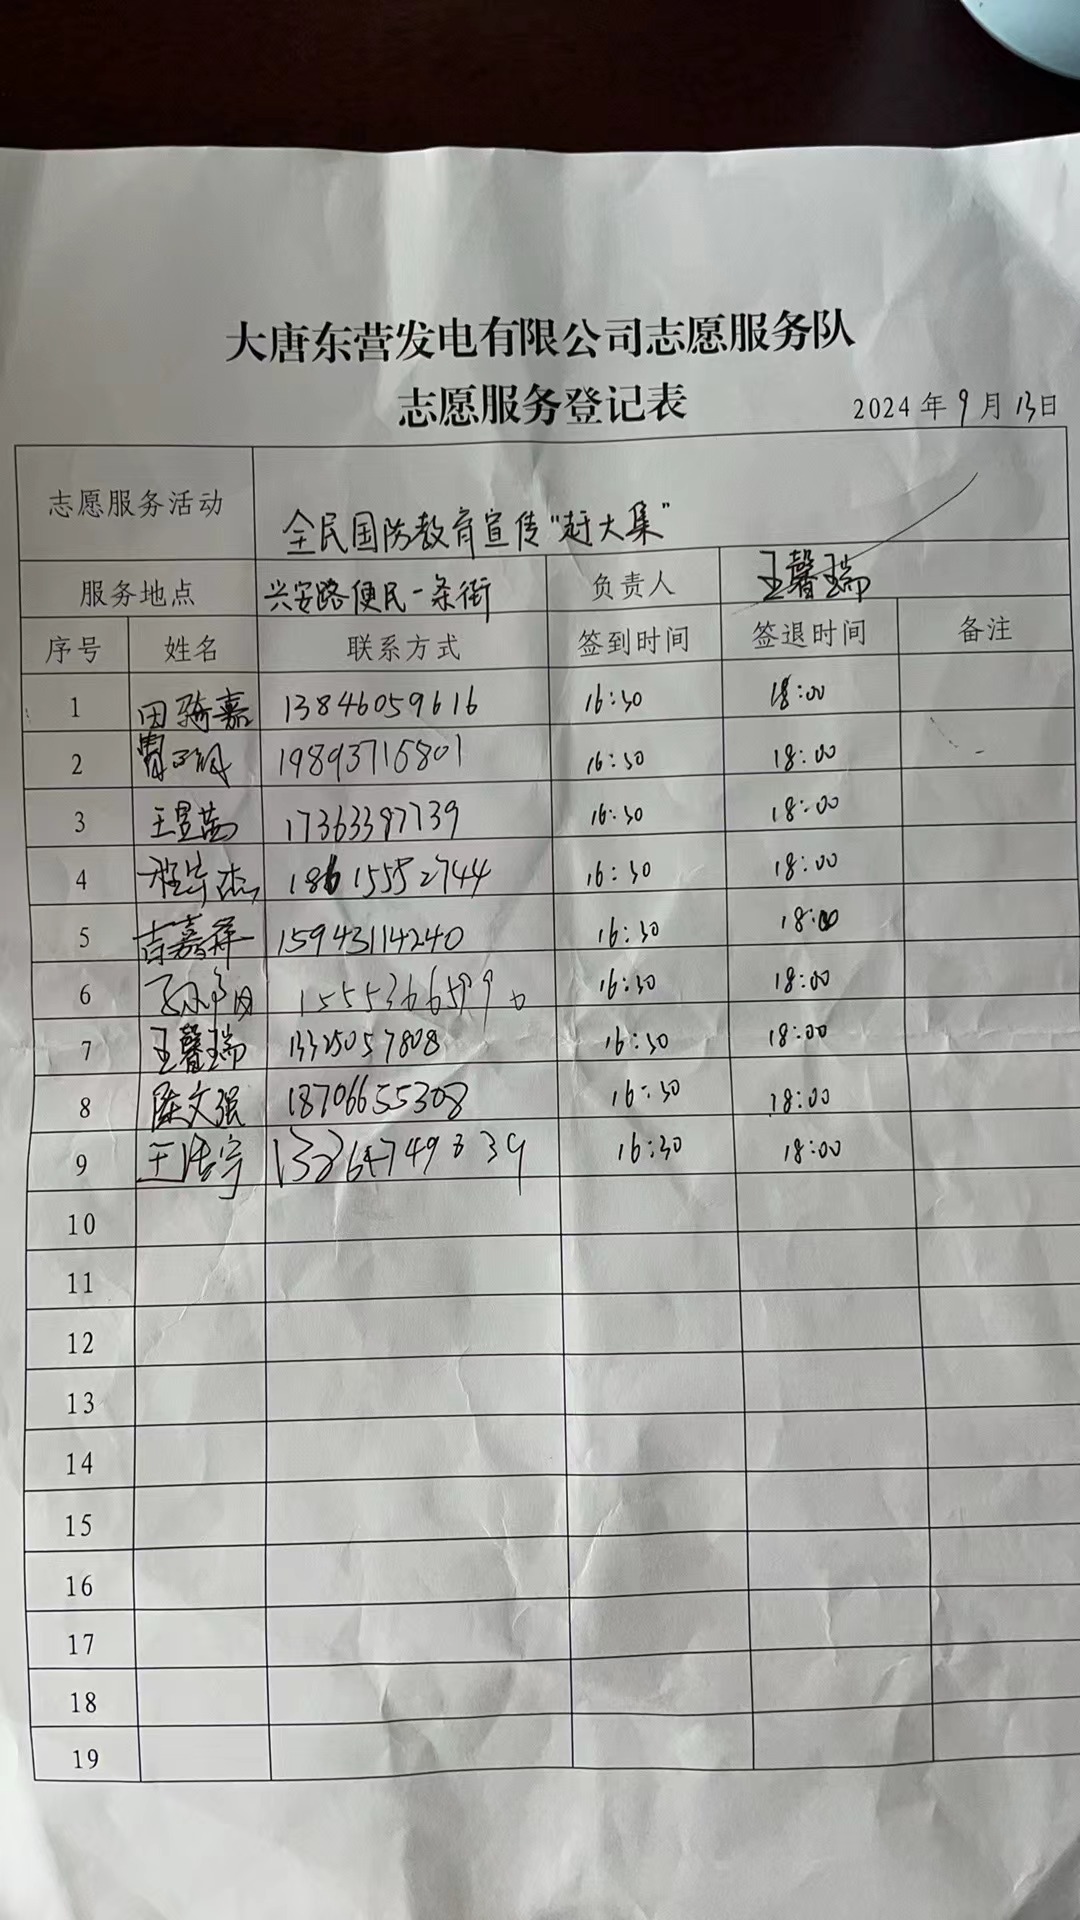 大唐东营发电有限公司志愿服务队
志愿服务登记表
2024年9月13日
志愿服务活动 全民国防教育宣传“赶大集”
服务地点 兴安路便民一条街 负责人 王馨瑞
序号 姓名 联系方式 签到时间 签退时间 备注
1 田骑嘉 13846059616 16:30 18:00
2 19893715801 16:30 18:00
3 王昱茜 17363397739 16:30 18:00
4 18615552744 16:30 18:00
5 吉嘉祥 15943114240 16:30 18:00
6 16:30 18:00
7 王馨瑞 13325057808 16:30 18:00
8 陈文强 18706655308 16:30 18:00
9 王浩宇 16:30 18:00
10
11
12
13
14
15
16
17
18
19